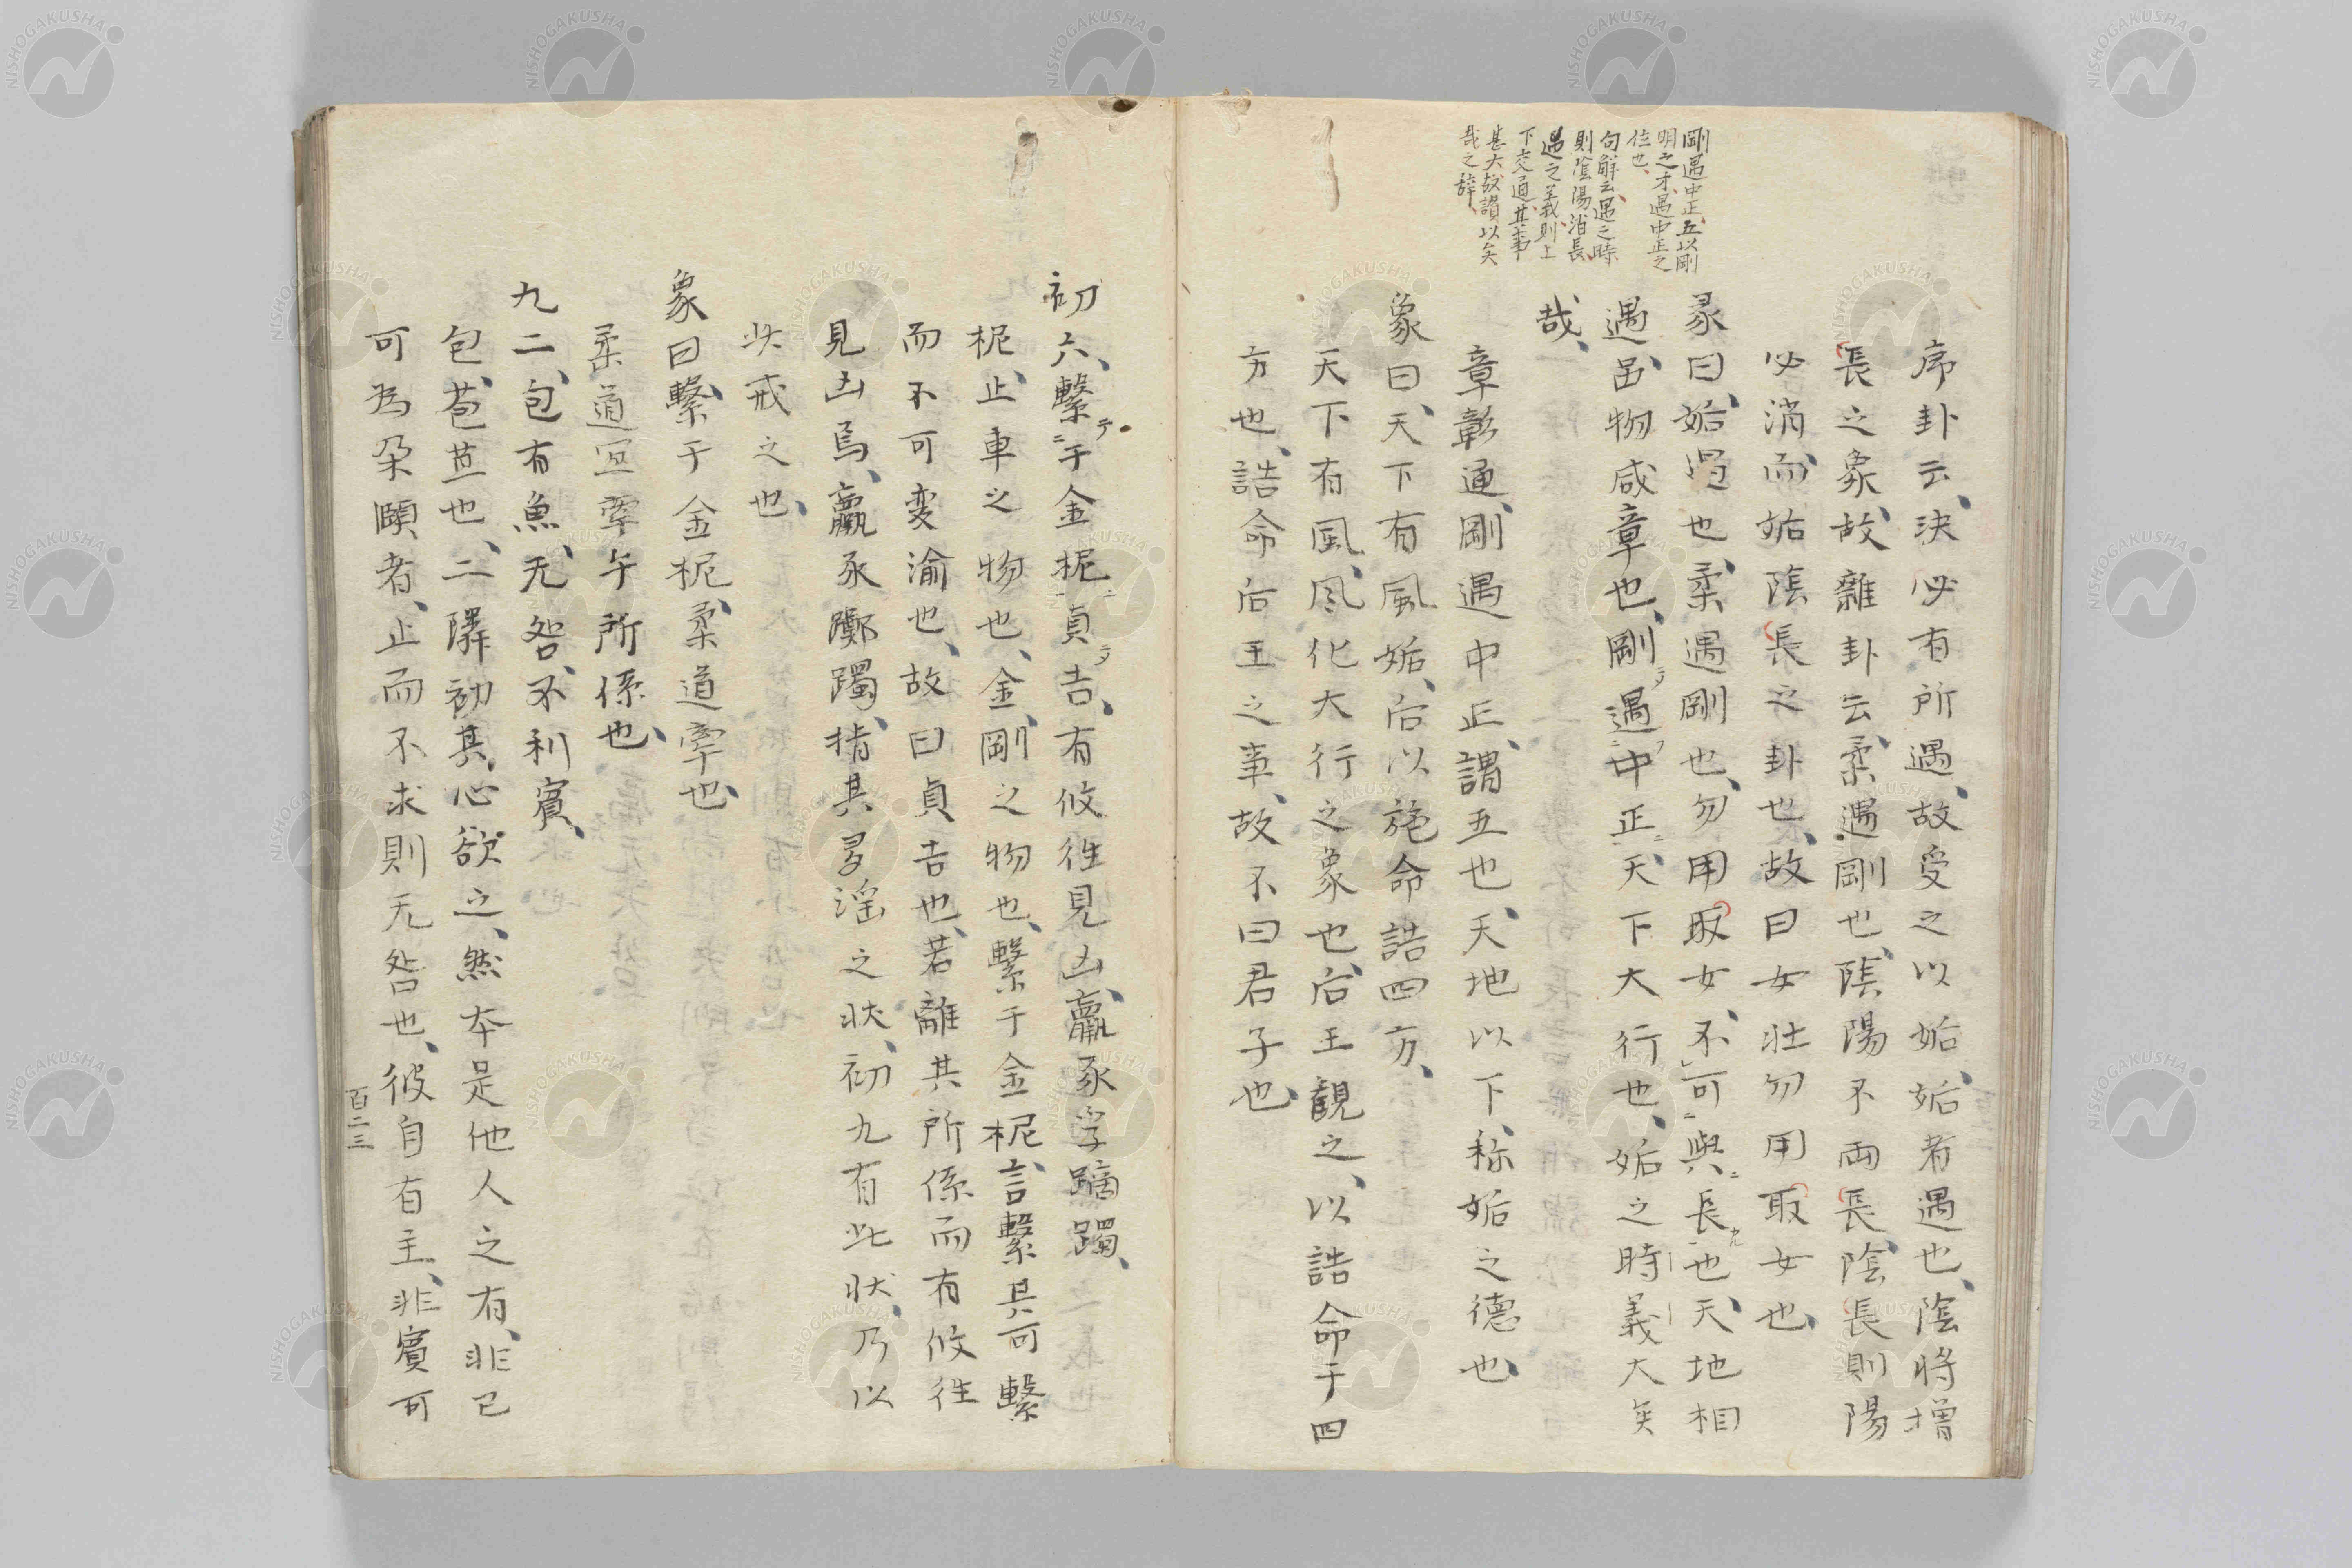 剛遇中正、五以剛
明之才、遇中正之
位也、
句解云、遇之時、
則陰陽消長、
遇之義、則上
下交通、其事
甚大、故讃以矣
哉之辞、
序卦云、決必有所遇、故受之以姤、姤者遇也、陰将増
長之象、故雜卦云、柔遇剛也、陰陽不両長、陰長則陽
必消、而姤陰長之卦也、故曰女壮勿用取女也、
彖曰、姤遇也、柔遇剛也、勿用取女、不可與長也、天地相
遇、品物咸章也、剛遇中正、天下大行也、姤之時義大矣
哉、
章彰通、剛遇中正、謂五也、天地以下、称姤之德也、
象曰、天下有風姤、后以施命誥四方、
天下有風、風化大行之象也、后王観之、以誥命于四
方也、誥命后王之事、故不曰君子也、
初六、繋于金柅、貞吉、有攸往見凶、羸豕孚蹢躅、
柅、止車之物也、金、剛之物也、繋于金柅、言繋其可繋
而不可変渝也、故曰貞吉也、若離其所係而有攸往
見凶焉、羸豕躑躅、指其多淫之状、初九有此状、乃以
此戒之也、
象曰、繋于金柅、柔道牽也、
柔道宜牽乎所係也、
九二、包有魚、无咎、不利賓、
包、苞苴也、二隣初其心欲之、然本是他人之有、非己
可為朶頤者、止而不求則无咎也、彼自有主、非賓可
百二三